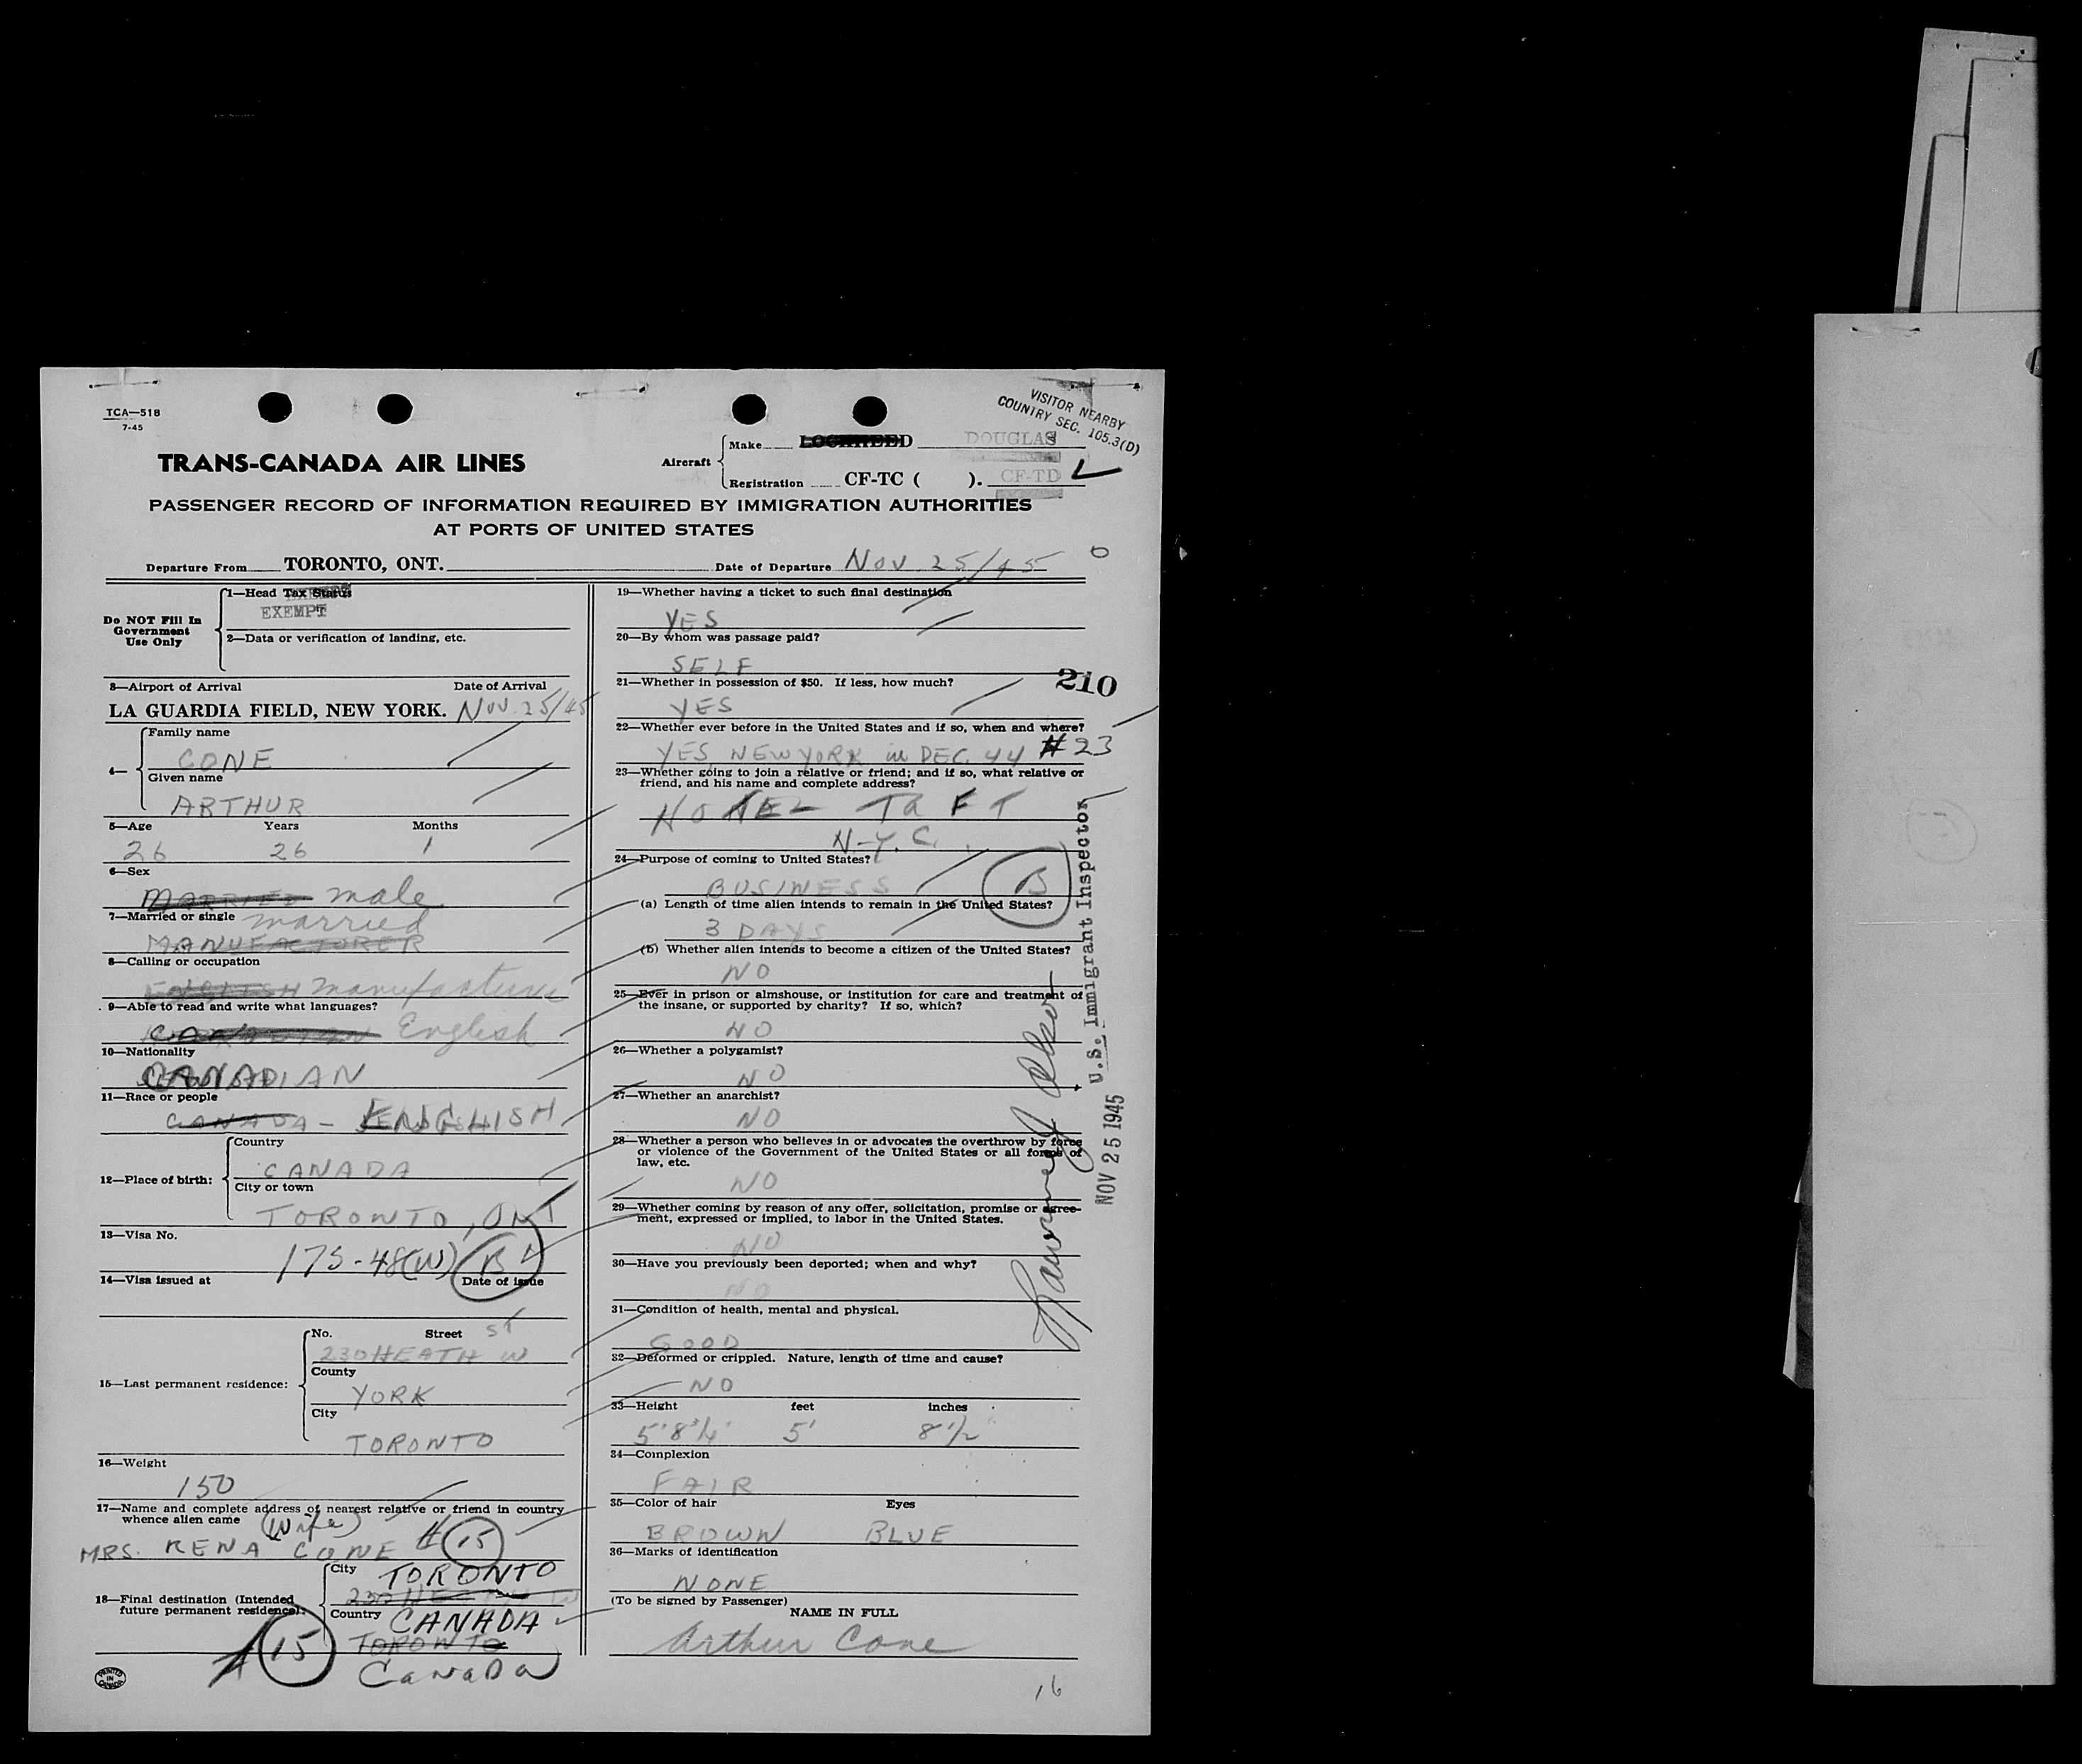 TCA—518
7-45
VISITOR NEARBY
COUNTRY SEC. 105.3(D)
TRANS-CANADA AIR LINES
Aircraft
Make LOCKHEED DOUGLAS
Registration CF-TC ( ). CF-TD
PASSENGER RECORD OF INFORMATION REQUIRED BY IMMIGRATION AUTHORITIES
AT PORTS OF UNITED STATES
Departure From TORONTO, ONT. Date of Departure NOV. 25/45
Do NOT Fill In
Government
Use Only
1—Head Tax Status
EXEMPT
2—Data or verification of landing, etc.
3—Airport of Arrival Date of Arrival
LA GUARDIA FIELD, NEW YORK. NOV 25/45
4—
Family name
CONE
Given name
ARTHUR
5—Age Years Months
26 26 1
6—Sex
MARRIED male
7—Married or single married
MANUFACTURER
8—Calling or occupation
ENGLISH manufacturer
9—Able to read and write what languages?
CANADIAN English
10—Nationality
CANADIAN
11—Race or people
CANADA - ENGLISH
12—Place of birth:
Country
CANADA
City or town
TORONTO, ONT
13—Visa No.
175-48(W) B
14—Visa issued at Date of issue
15—Last permanent residence:
No. Street ST
230 HEATH W
County
YORK
City
TORONTO
16—Weight
150
17—Name and complete address of nearest relative or friend in country
whence alien came (Wife)
MRS. RENA CONE # 15
18—Final destination (Intended
future permanent residence):
City TORONTO
230 HEATH W
Country CANADA
TORONTO
# 15
CANADA
PRINTED
IN
CANADA
19—Whether having a ticket to such final destination
YES
20—By whom was passage paid?
SELF
21—Whether in possession of $50. If less, how much?
210
YES
22—Whether ever before in the United States and if so, when and where?
YES, NEW YORK in DEC. 44 #23
23—Whether going to join a relative or friend; and if so, what relative or
friend, and his name and complete address?
HOTEL TAFT
N.Y.C.
24—Purpose of coming to United States?
BUSINESS B
(a) Length of time alien intends to remain in the United States?
3 DAYS
(b) Whether alien intends to become a citizen of the United States?
NO
25—Ever in prison or almshouse, or institution for care and treatment of
the insane, or supported by charity? If so, which?
NO
26—Whether a polygamist?
NO
27—Whether an anarchist?
NO
28—Whether a person who believes in or advocates the overthrow by force
or violence of the Government of the United States or all forms of
law, etc.
NO
29—Whether coming by reason of any offer, solicitation, promise or agree-
ment, expressed or implied, to labor in the United States.
NO
30—Have you previously been deported; when and why?
NO
31—Condition of health, mental and physical.
GOOD
32—Deformed or crippled. Nature, length of time and cause?
NO
33—Height feet inches
5'8¾ 5' 8½
34—Complexion
FAIR
35—Color of hair Eyes
BROWN BLUE
36—Marks of identification
NONE
(To be signed by Passenger)
NAME IN FULL
Arthur Cone
16
NOV 25 1945 U.S. Immigrant Inspector